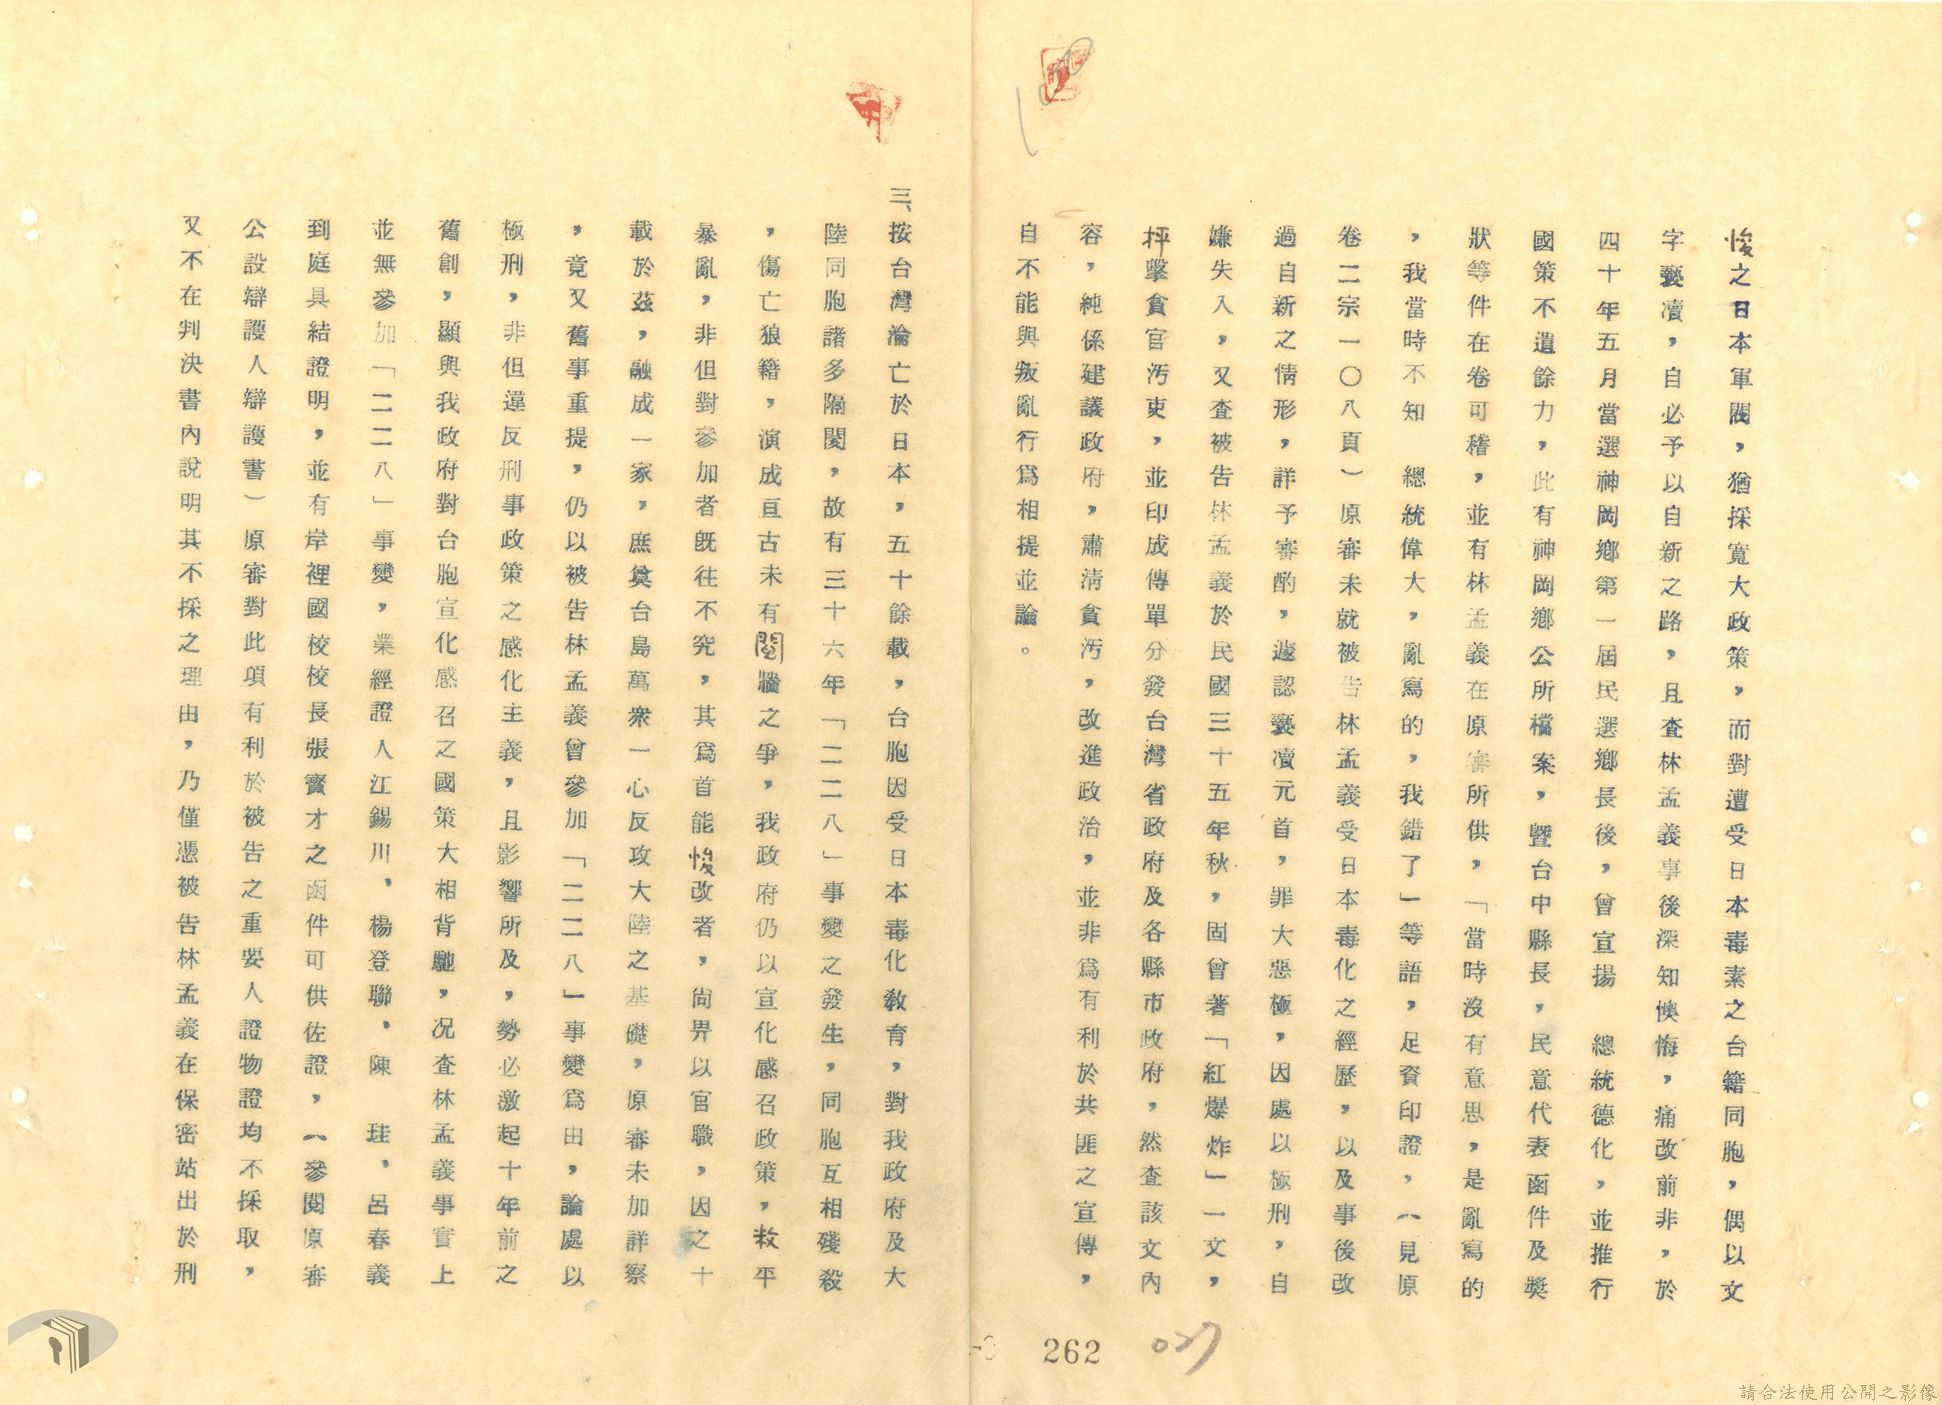 悛之日本軍閥，猶採寬大政策，而對遭受日本毒素之台籍同胞，偶以文
字褻凟，自必予以自新之路，且查林孟義事後深知懊悔，痛改前非，於
四十年五月當選神岡鄉第一屆民選鄉長後，曾宣揚　總統德化，並推行
國策不遺餘力，此有神岡鄉公所檔案，暨台中縣長，民意代表函件及獎
狀等件在卷可稽，並有林孟義在原審所供，「當時沒有意思，是亂寫的
，我當時不知　總統偉大，亂寫的，我錯了」等語，足資印證，（見原
卷二宗一〇八頁）原審未就被告林孟義受日本毒化之經歷，以及事後改
過自新之情形，詳予審酌，遽認褻凟元首，罪大惡極，因處以極刑，自
嫌失入，又查被告林孟義於民國三十五年秋，固曾著「紅爆炸」一文，
抨擊貪官汚吏，並印成傳單分發台灣省政府及各縣市政府，然查該文內
容，純係建議政府，肅淸貪汚，改進政治，並非爲有利於共匪之宣傳，
自不能與叛亂行爲相提並論。
三、按台灣淪亡於日本，五十餘載，台胞因受日本毒化敎育，對我政府及大
陸同胞諸多隔閡，故有三十六年「二二八」事變之發生，同胞互相殘殺
，傷亡狼籍，演成亘古未有鬩牆之爭，我政府仍以宣化感召政策，敉平
暴亂，非但對參加者旣往不究，其爲首能悛改者，尙畀以官職，因之十
載於茲，融成一家，庶奠台島萬衆一心反攻大陸之基礎，原審未加詳察
，竟又舊事重提，仍以被告林孟義曾參加「二二八」事變爲由，論處以
極刑，非但違反刑事政策之感化主義，且影響所及，勢必激起十年前之
舊創，顯與我政府對台胞宣化感召之國策大相背馳，况查林孟義事實上
並無參加「二二八」事變，業經證人江錫川、楊登聯、陳　珪、呂春義
到庭具結證明，並有岸裡國校校長張寶才之函件可供佐證，（參閱原審
公設辯護人辯護書）原審對此項有利於被告之重要人證物證均不採取，
又不在判決書內說明其不採之理由，乃僅憑被告林孟義在保密站出於刑
262
027
請合法使用公開之影像